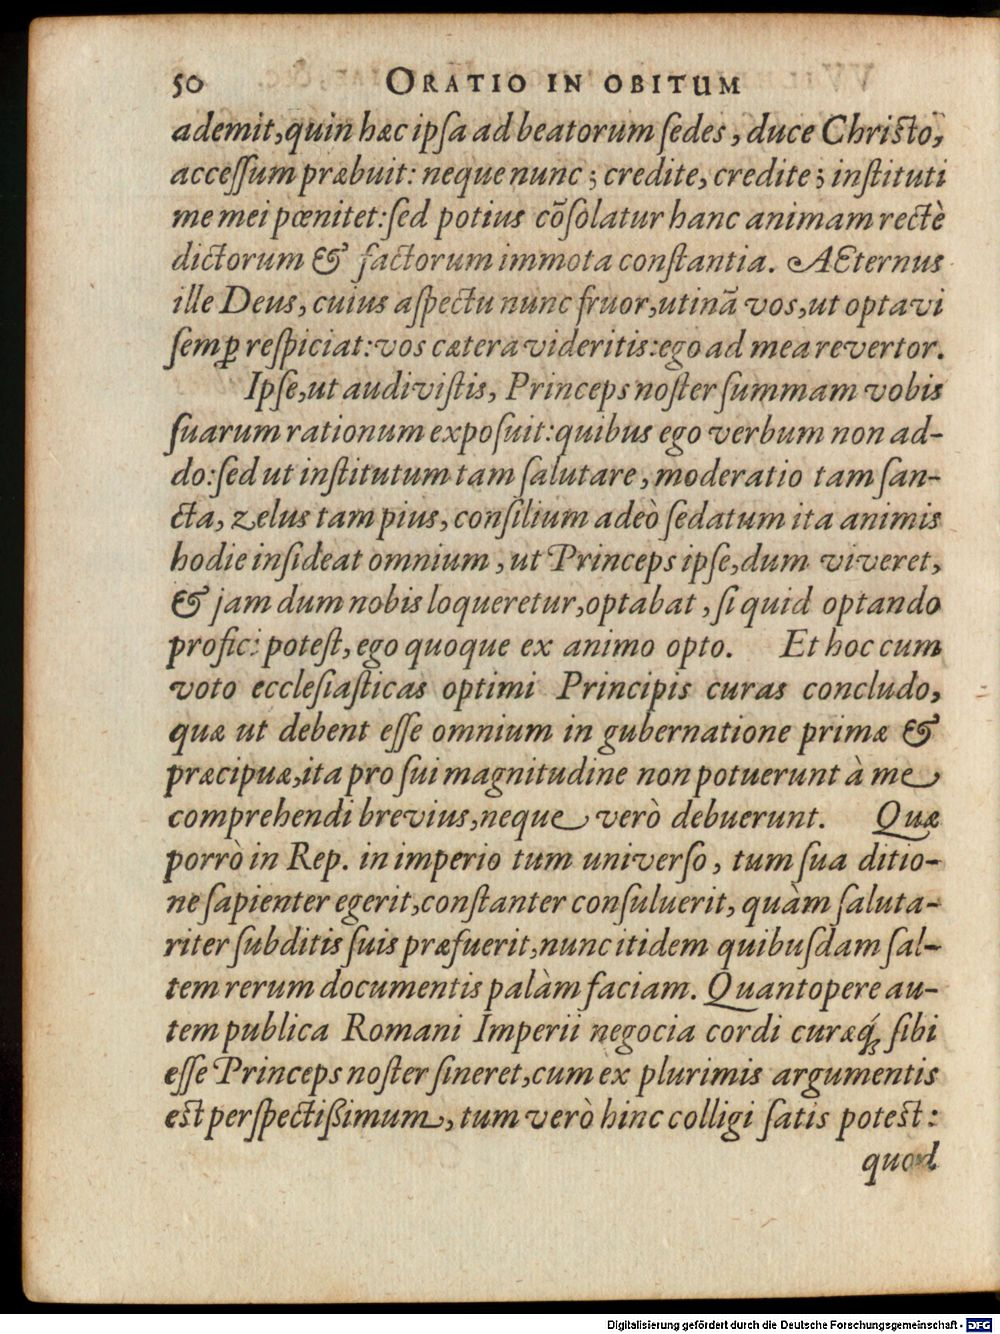 50 ORATIO IN OBITUM
ademit, quin hæc ipſa ad beatorum ſedes, duce Chriſto,
acceſſum præbuit: neque nunc; credite, credite; inſtituti
me mei pœnitet: ſed potius cõſolatur hanc animam rectè
dictorum & factorum immota conſtantia. AEternus
ille Deus, cuius aſpectu nunc fruor, utinã vos, ut optavi
ſemꝑ reſpiciat: vos cætera videritis: ego ad mea revertor.
Ipſe, ut audiviſtis, Princeps noſter ſummam vobis
ſuarum rationum expoſuit: quibus ego verbum non ad-
do: ſed ut inſtitutum tam ſalutare, moderatio tam ſan-
cta, zelus tam pius, conſilium adeò ſedatum ita animis
hodie inſideat omnium, ut Princeps ipſe, dum viveret,
& jam dum nobis loqueretur, optabat, ſi quid optando
profici poteſt, ego quoque ex animo opto. Et hoc cum
voto eccleſiaſticas optimi Principis curas concludo,
quæ ut debent eſſe omnium in gubernatione primæ &
præcipuæ, ita pro ſui magnitudine non potuerunt à me
comprehendi brevius, neque verò debuerunt. Quæ
porrò in Rep. in imperio tum univerſo, tum ſua ditio-
ne ſapienter egerit, conſtanter conſuluerit, quàm ſaluta-
riter ſubditis ſuis præfuerit, nunc itidem quibuſdam ſal-
tem rerum documentis palàm faciam. Quantopere au-
tem publica Romani Imperii negocia cordi curæq́; ſibi
eſſe Princeps noſter ſineret, cum ex plurimis argumentis
eſt perſpectißimum, tum verò hinc colligi ſatis poteſt:
quod
Digitalisierung gefördert durch die Deutsche Forschungsgemeinschaft - DFG